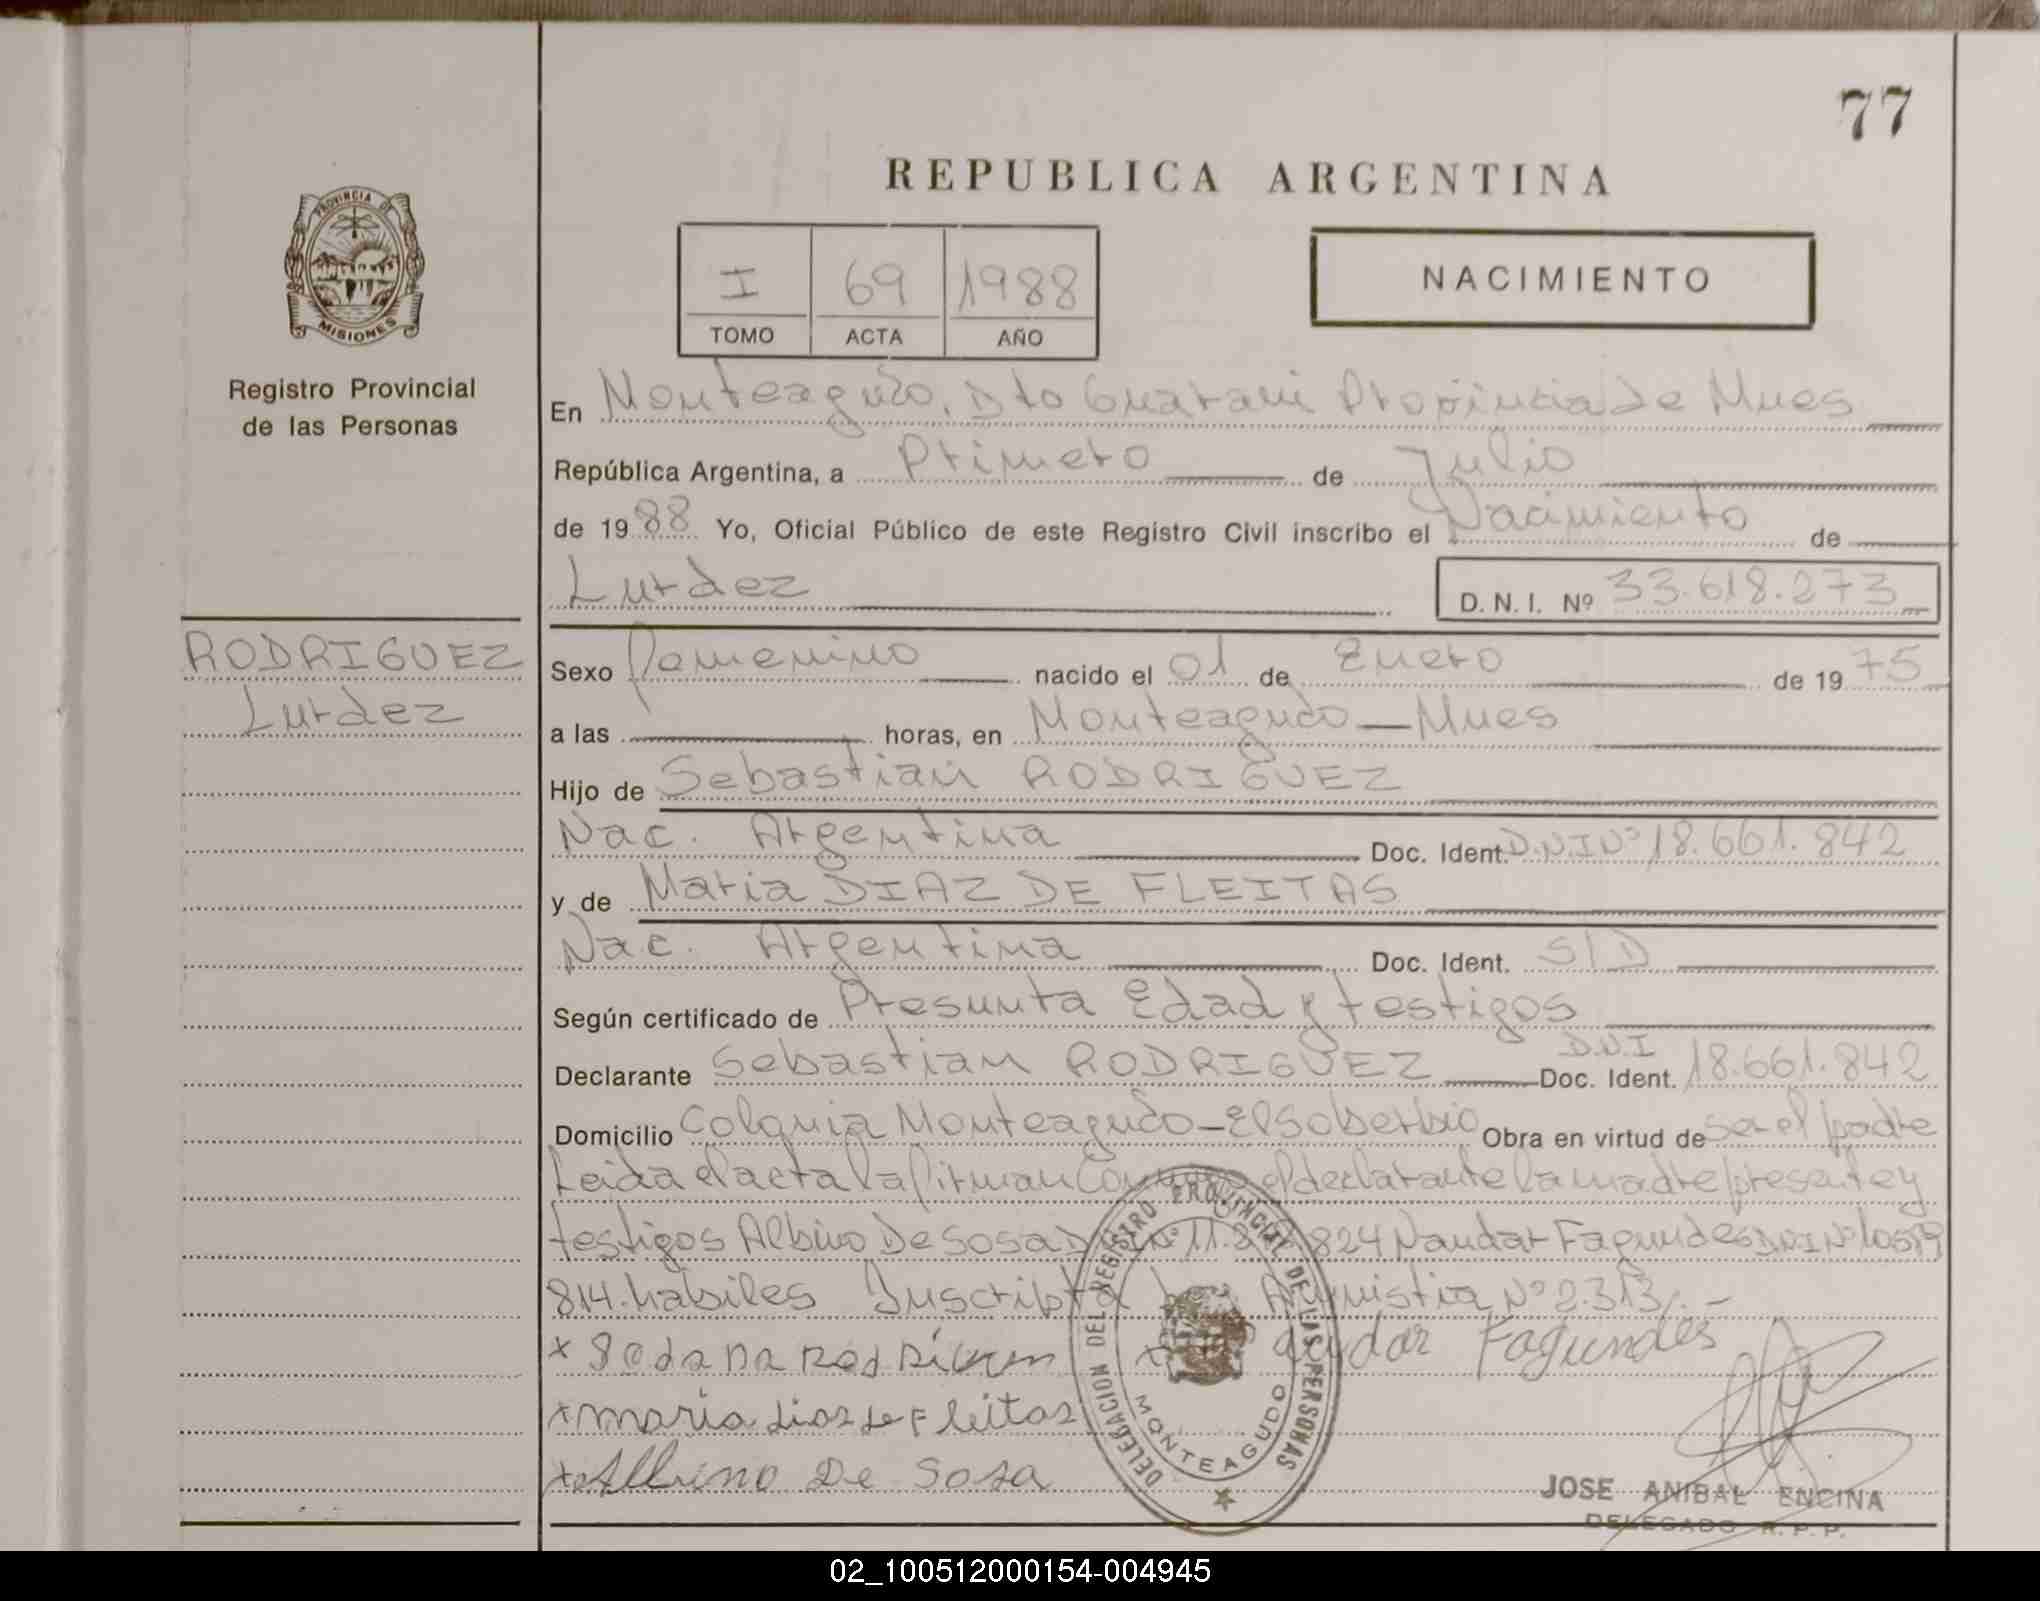 77
REPUBLICA ARGENTINA
PROVINCIA DE
MISIONES
Registro Provincial
de las Personas
I 69 1988
TOMO ACTA AÑO
NACIMIENTO
En Monteagudo, Dto Guarani Provincia de Mnes
República Argentina, a Primero de Julio
de 1988 Yo, Oficial Público de este Registro Civil inscribo el Nacimiento de
Lurdez D. N. I. Nº 33.618.273
RODRIGUEZ
Lurdez
Sexo femenino nacido el 01 de Enero de 1975
a las horas, en Monteagudo - Mnes
Hijo de Sebastian RODRIGUEZ
Nac. Argentina Doc. Ident. D.N.I Nº 18.661.842
y de Maria DIAZ DE FLEITAS
Nac. Argentina Doc. Ident. S/D
Según certificado de Presunta Edad y testigos
Declarante Sebastian RODRIGUEZ Doc. Ident. D.N.I 18.661.842
Domicilio Colonia Monteagudo - El Soberbio Obra en virtud de ser el padre
Leida el acta la firman el declarante la madre presente y
testigos Albino De Sosa 824 Nandar Fagundes DNI Nº 10.579
814. habiles Inscripta Amnistia Nº 2313.-
x
Fagundes
x maria dias de Fleitas
x Albino De Sosa
DELEGACION DEL REGISTRO PROVINCIAL DE LAS PERSONAS
MONTEAGUDO
JOSE ANIBAL ENCINA
DELEGADO R. P. P.
02_100512000154-004945